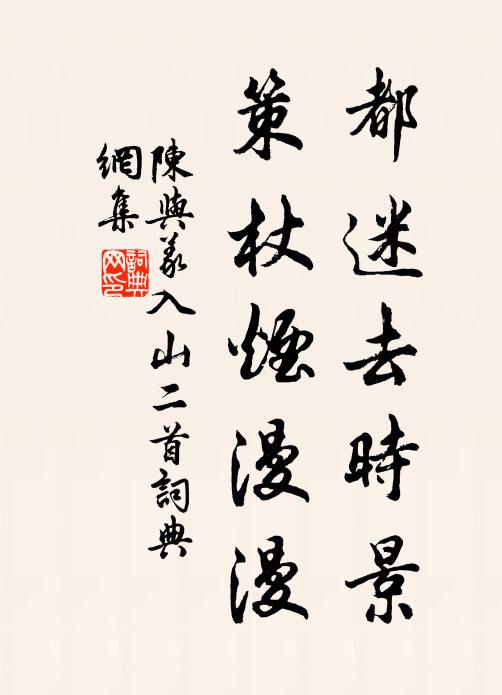 都迷去時景
策杖煙漫漫
陳與義入山二首詞典
網集
詞典
网印